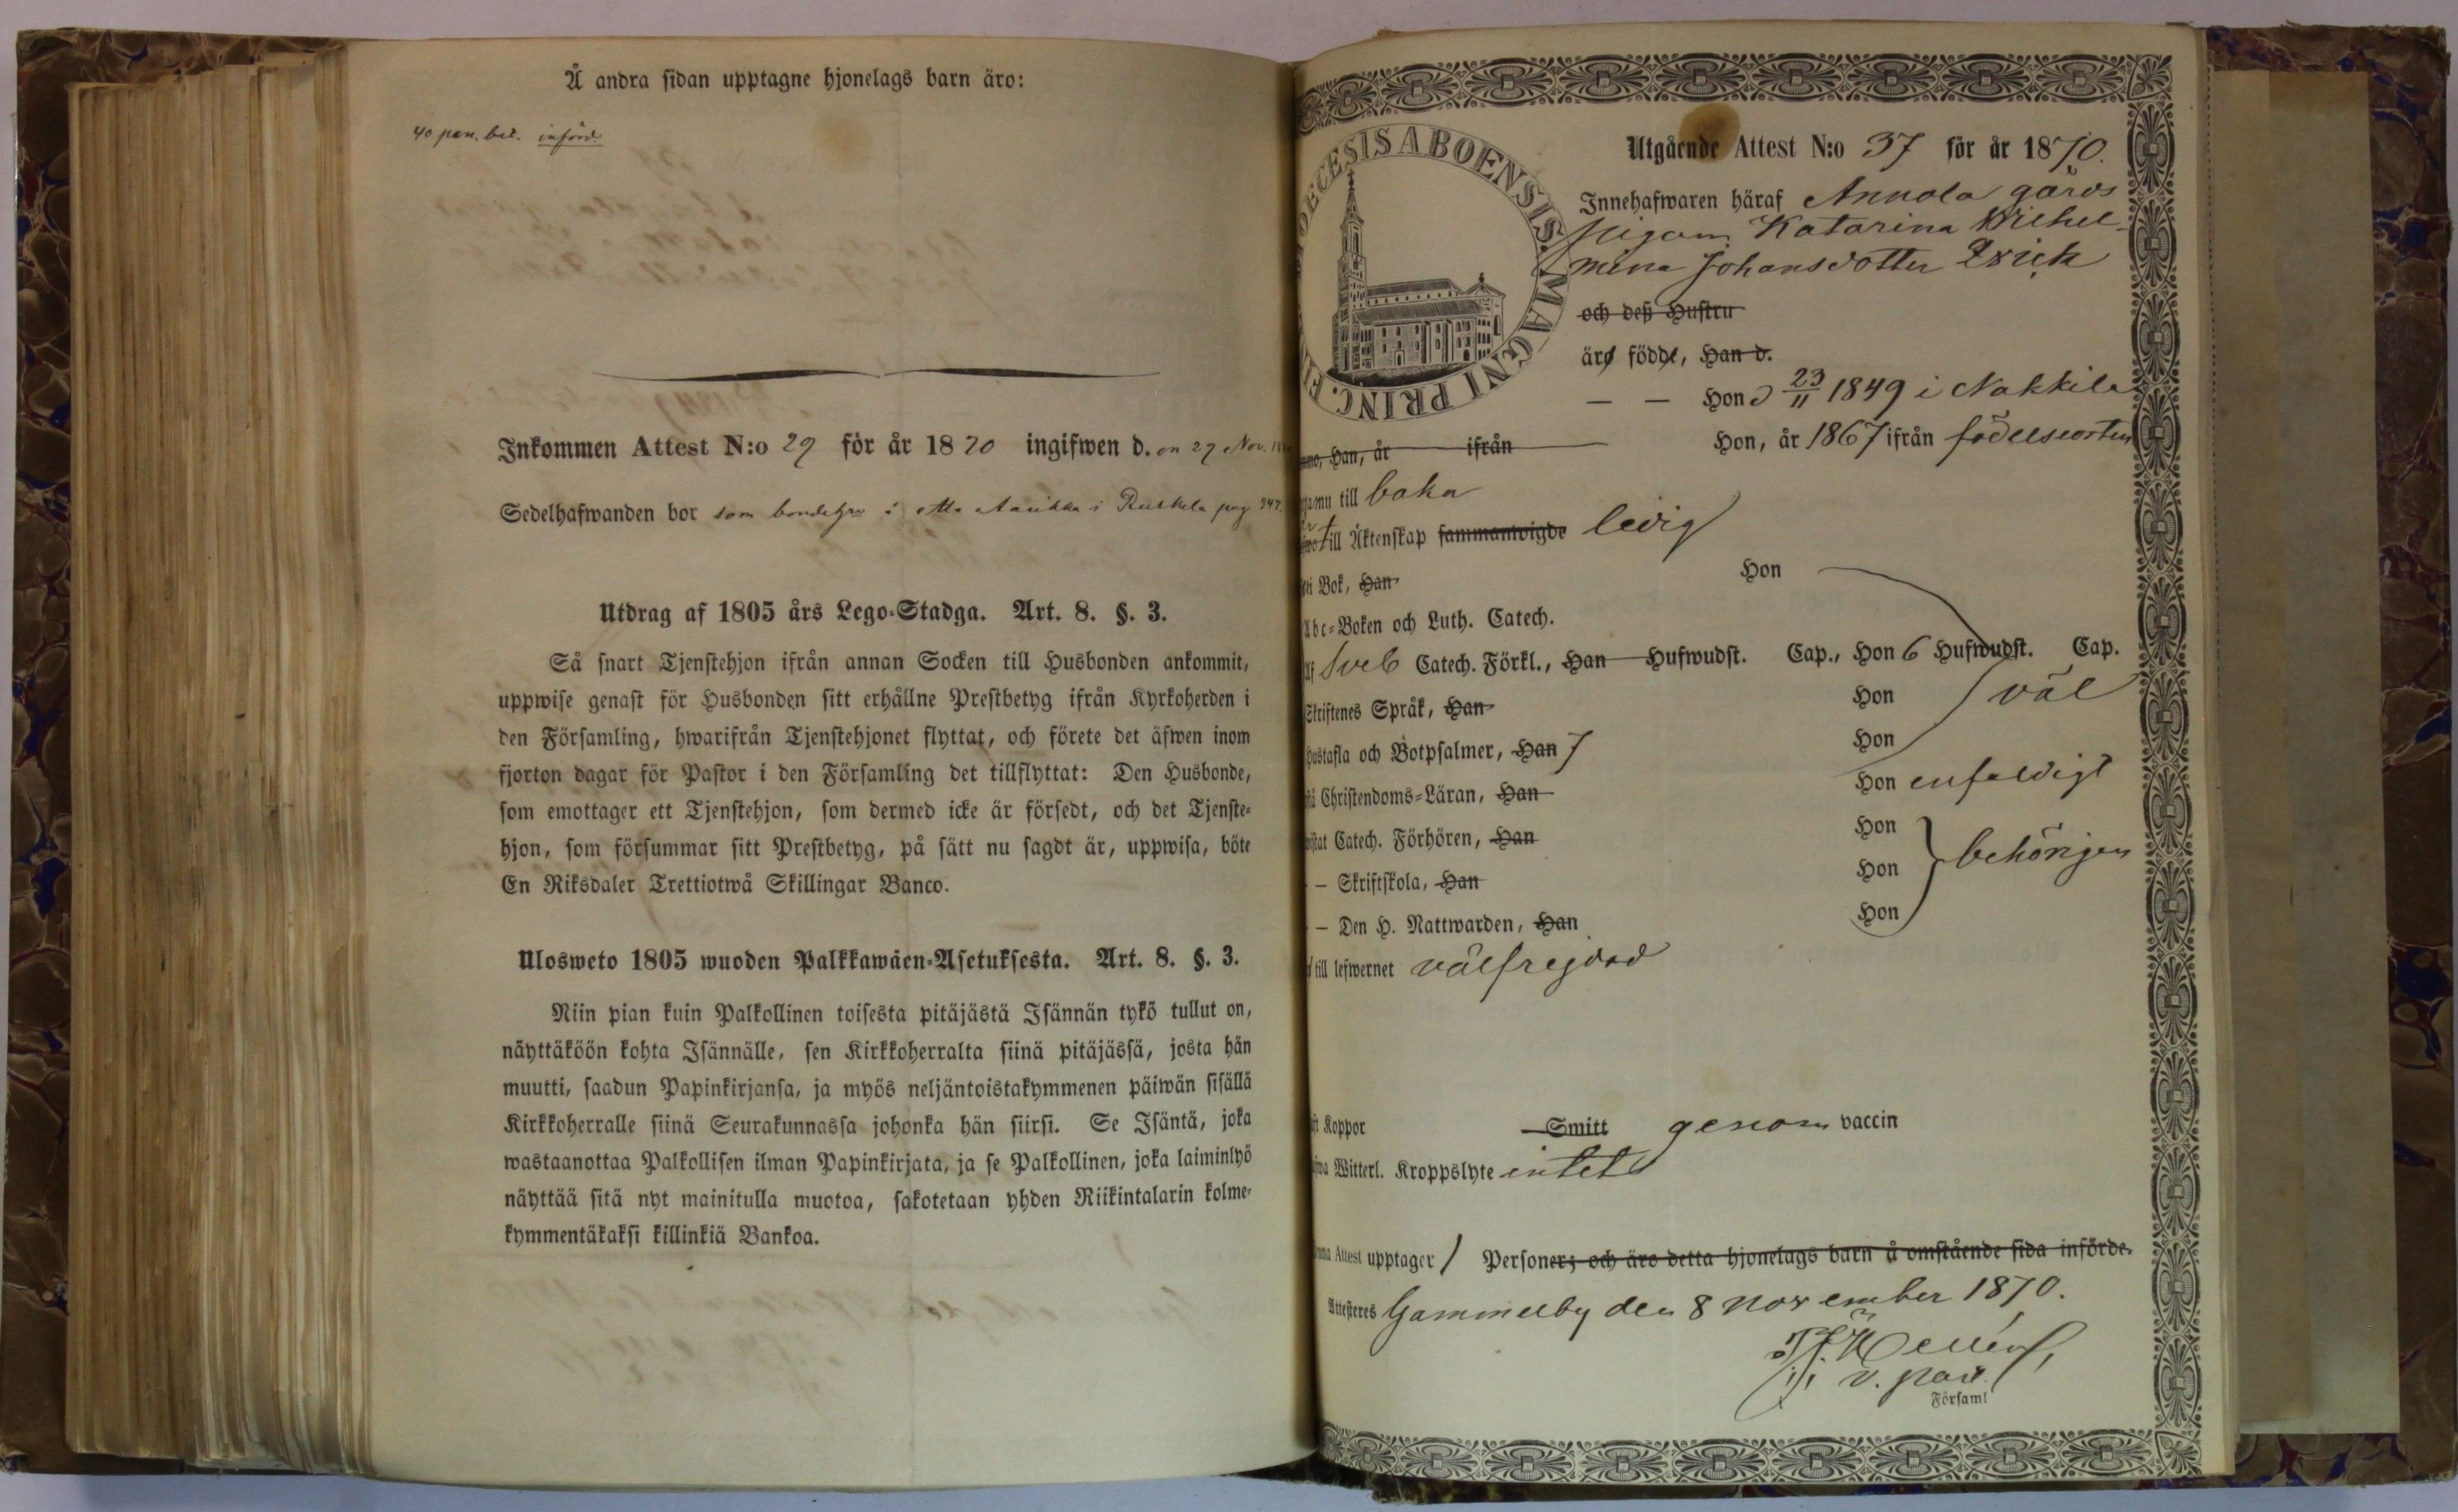 Å andra sidan upptagne hjonelags barn äro:
40 pen. bet. införd
Inkommen Attest N:o 29 för år 1870 ingifwen d. on 27 Nov.
Sedelhafwanden bor som i Ruskela pag 347.
Utdrag af 1805 års Lego-Stadga. Art. 8. §. 3.
Så snart Tjenstehjon ifrån annan Socken till Husbonden ankommit,
uppwise genast för Husbonden sitt erhållne Prestbetyg ifrån Kyrkoherden i
den Församling, hwarifrån Tjenstehjonet flyttat, och förete det äfwen inom
fjorton dagar för Pastor i den Församling det tillflyttat: Den Husbonde,
som emottager ett Tjenstehjon, som dermed icke är försedt, och det Tjenste-
hjon, som försummar sitt Prestbetyg, på sätt nu sagdt är, uppwisa, böte
En Riksdaler Trettiotwå Skillingar Banco.
Ulosweto 1805 wuoden Palkkawäen-Asetuksesta. Art. 8. §. 3.
Niin pian kuin Palkollinen toisesta pitäjästä Isännän tykö tullut on,
näyttäköön kohta Isännälle, sen Kirkkoherralta siinä pitäjässä, josta hän
muutti, saadun Papinkirjansa, ja myös neljäntoistakymmenen päiwän sisällä
Kirkkoherralle siinä Seurakunnassa johonka hän siirsi. Se Isäntä, joka
wastaanottaa Palkollisen ilman Papinkirjata, ja se Palkollinen, joka laiminlyö
näyttää sitä nyt mainitulla muotoa, sakotetaan yhden Riikintalarin kolme-
kymmentäkaksi killinkiä Bankoa.
DIOECESIS ABOENSIS. MAGNI PRINC.
Utgående Attest N:o 37 för år 1870.
Innehafwaren häraf Annola gårds
pigan Katarina Wilhel-
mina Johansdotter
och deß Hustru
äro födde, Han d.
— — Hon d 23/11 1849 i Nakkila
Han, år ifrån Hon, år 1867 ifrån födelseorten
till baka
till Äktenskap sammanwigde ledig
Bok, Han Hon
Abc-Boken och Luth. Catech.
Af Sveb Catech. Förkl., Han Hufwudst. Cap., Hon 6 Hufwudst. Cap.
Skriftenes Språk, Han Hon väl
Hustafla och Botpsalmer, Han 7 Hon
Christendoms-Läran, Han Hon enfaldigt
Catech. Förhören, Han Hon
— Skriftskola, Han Hon behörigen
— Den H. Nattwarden, Han Hon
till lefwernet välfrejdad
Koppor Smitt genom vaccin
Witterl. Kroppslyte intet
Attest upptager 1 Personer; och äro detta hjonelags barn å omstående sida införde.
Attesteres Gammelby den 8 November 1870.
v. past.
Församl